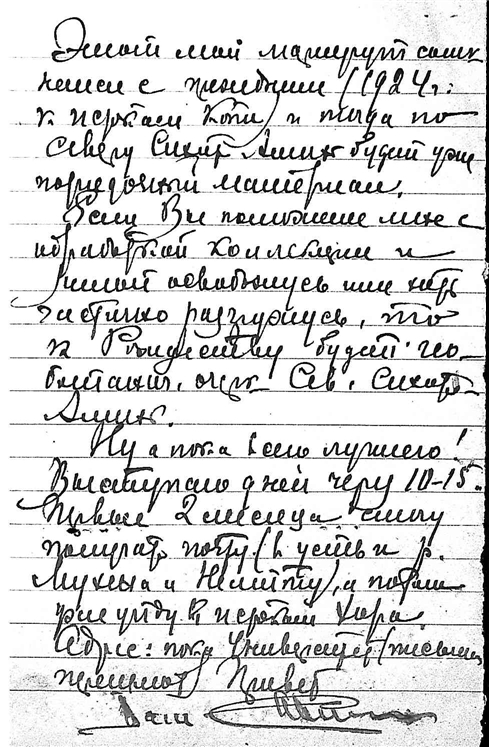 Этот мой маршрут сомк
немся с прошлым (1924 г:
к истокам Копи) и тогда по
северу Сихотэ Алиню будет уже
порядочный материал.
Если Вы поможете мне с
обработкой коллекции и
зимой освобожусь или хоть
частично разгружусь, то
к Рождеству будет гео-
ботанич. очерк Сев. Сихотэ-
Алиня.
Ну а пока всего лучшего!
Выступаю дней через 10-15.
Первые 2 месяца смогу
получать почту (в устье р.
Мухеня и Немпту), а потом
уже уйду в истоки Хора.
Адрес: пока Университет (письма
перешлют) Привет
Ваш